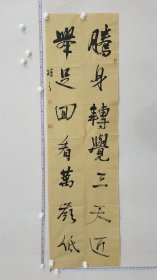 騰身轉覺三天近
舉足回看萬嶺低